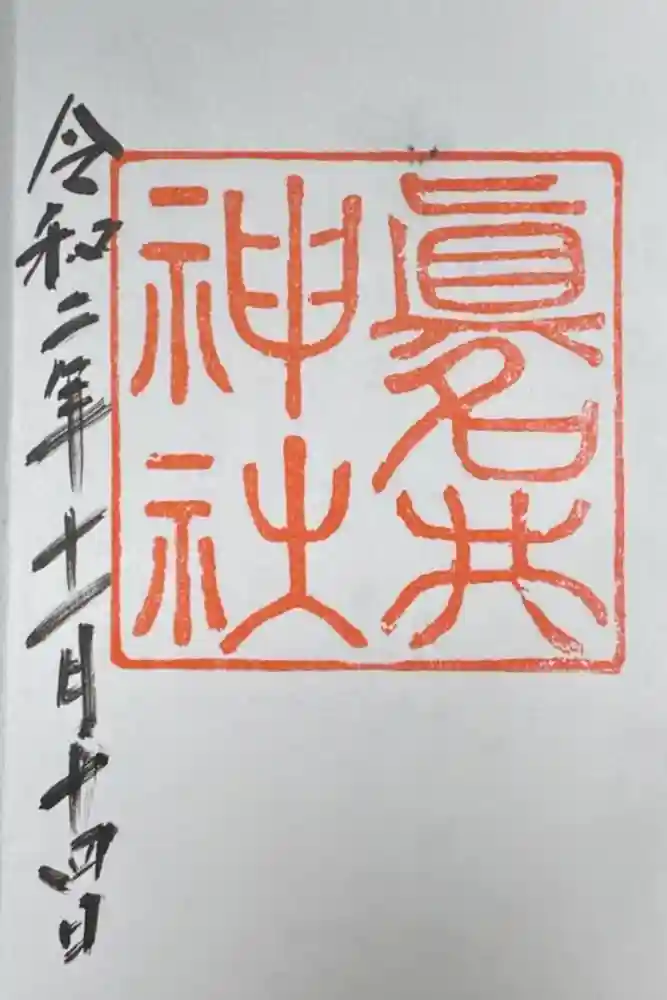 眞名井
神社
令和二年十一月十四日